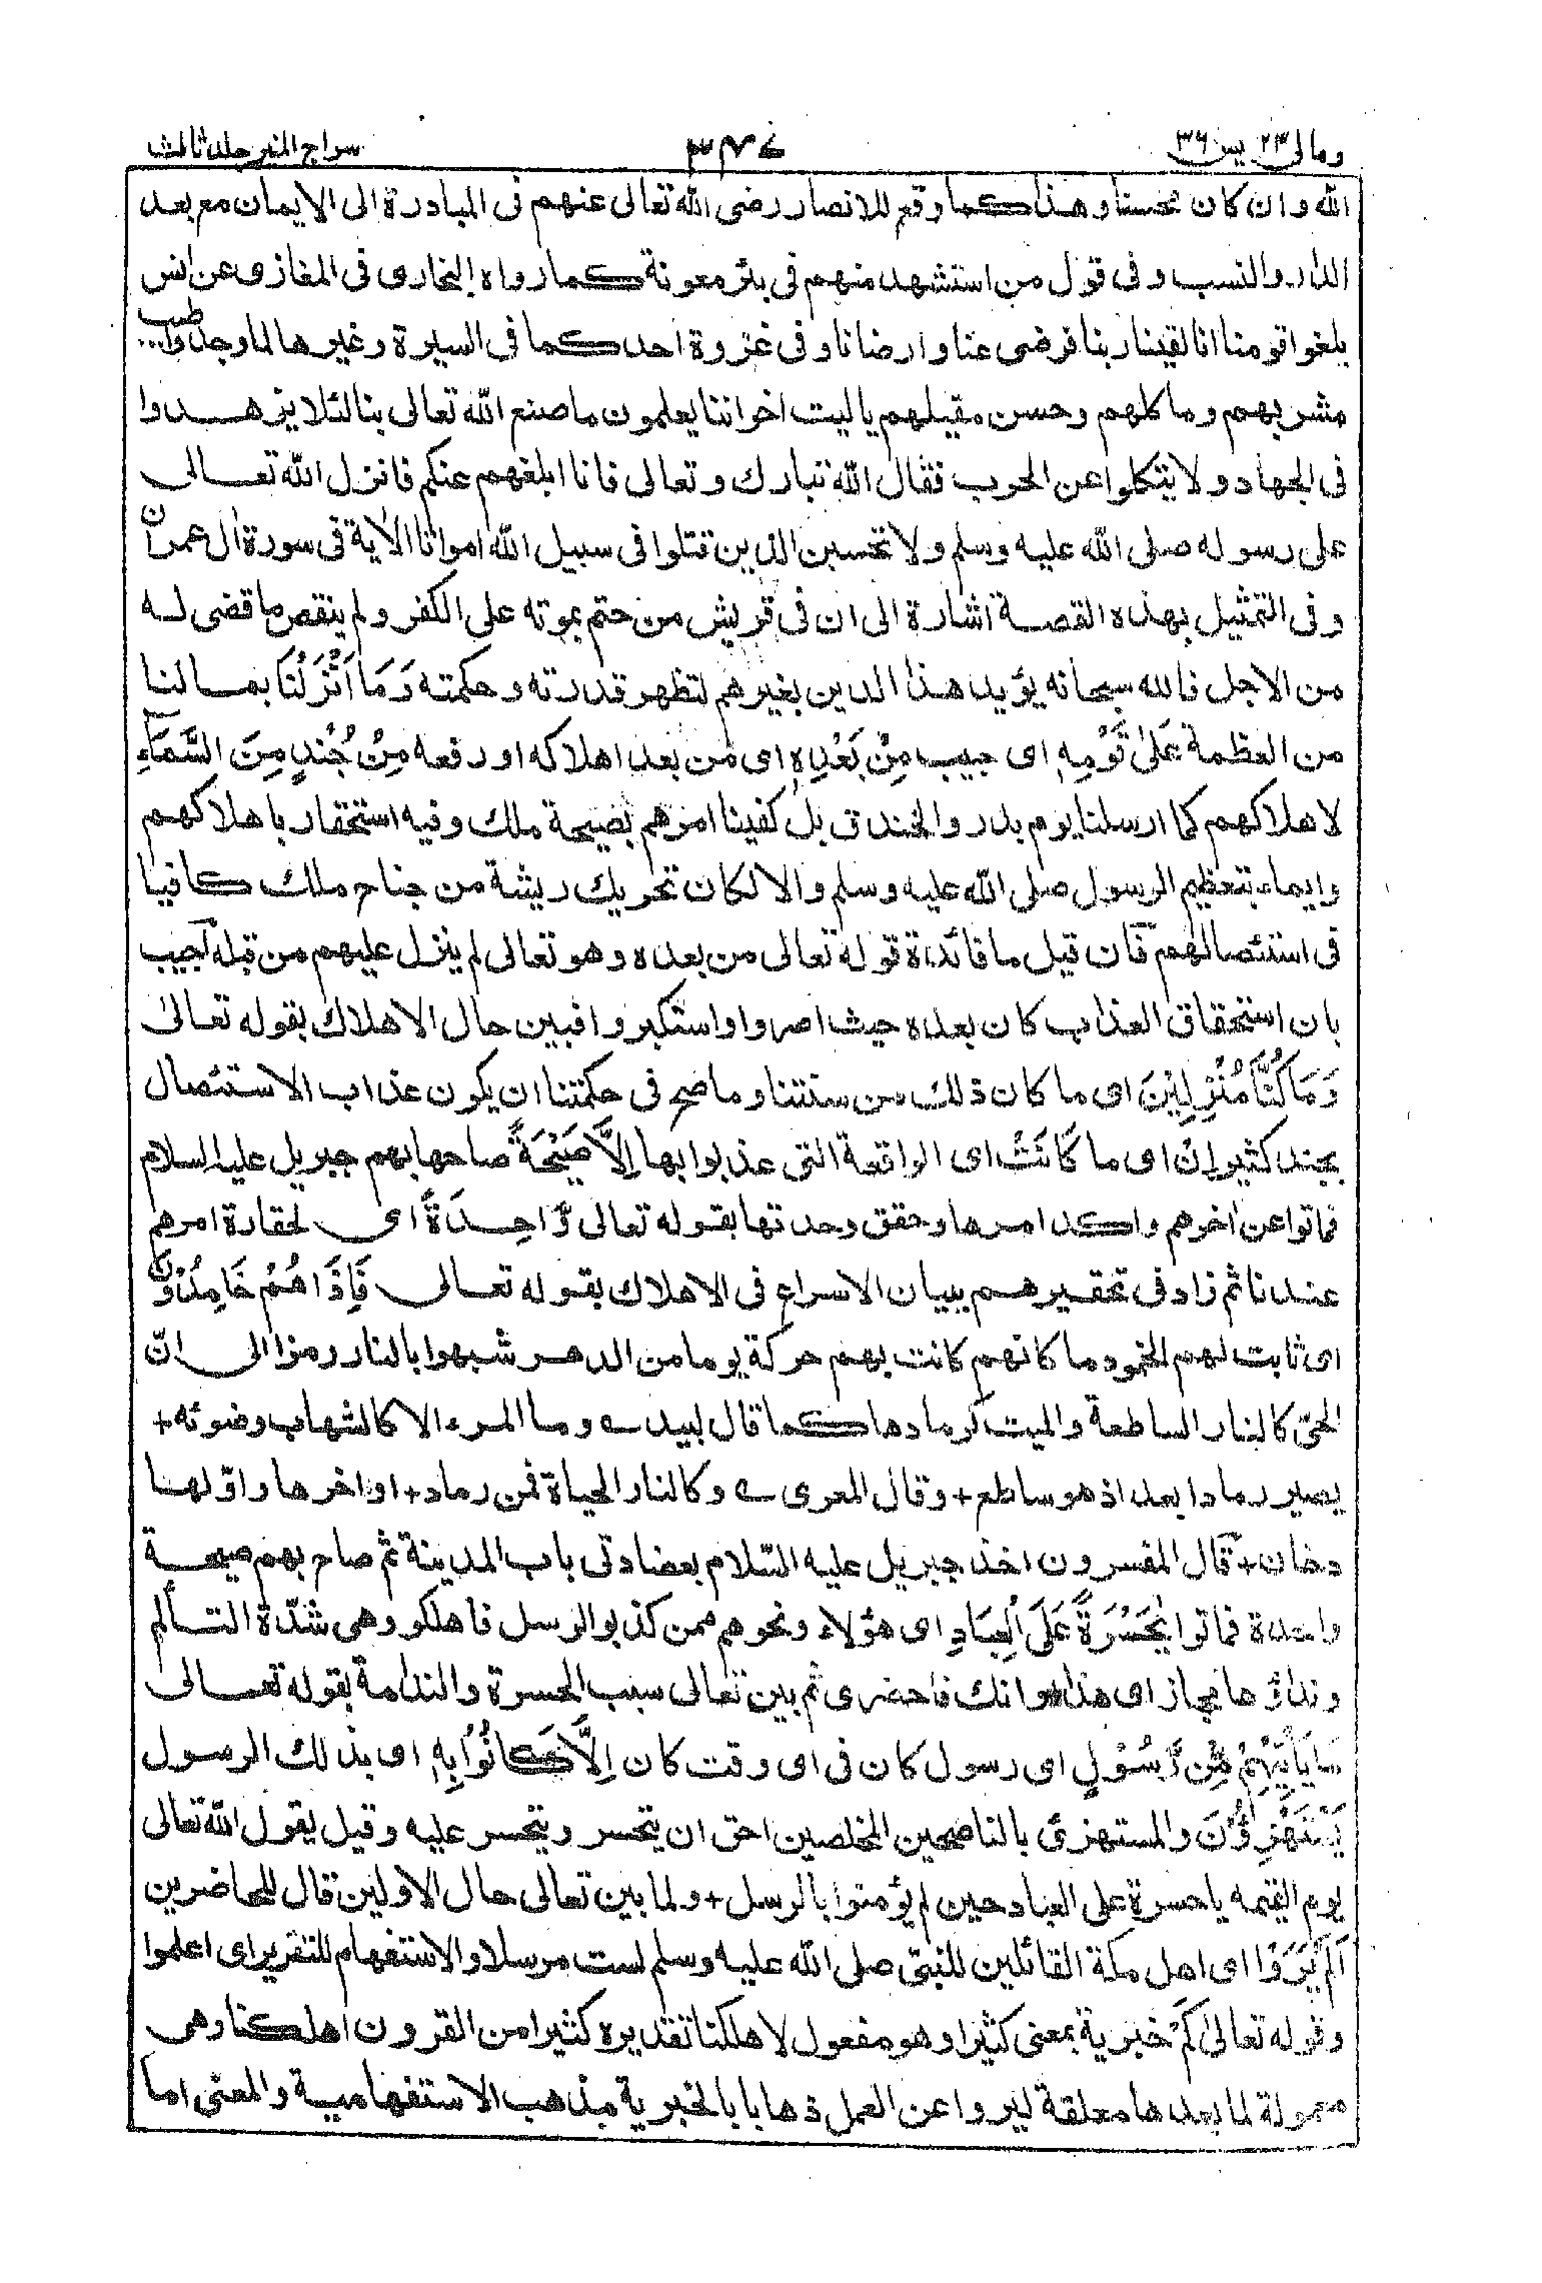 ومالی ۲۳ یس ۳۶
۳۴۷
سراج المنیر جلد ثالث
الله وان كان محسنا وهذا كما وقع للانصار رضى الله تعالى عنهم فى المبادرة الى الايمان مع بعد
الدار والنسب وفى قول من استشهد منهم فى بئر معونة كما رواه البخارى فى المغازى عن انس
بلغوا قومنا انا لقينا ربنا فرضى عنا وارضانا وفى غزوة احد كما فى السيرة وغيرها لما وجدوا طيب
مشربهم وماكلهم وحسن مقيلهم ياليت اخواننا يعلمون ما صنع الله تعالى بنا لئلا يزهدوا
فى الجهاد ولا يتكلوا عن الحرب فقال الله تبارك وتعالى فانا ابلغهم عنكم فانزل الله تعالى
على رسوله صلى الله عليه وسلم ولا تحسبن الذين قتلوا فى سبيل الله امواتا الآية فى سورة آل عمران
وفى التمثيل بهذه القصة اشارة الى ان فى قريش من حتم بموته على الكفر ولم ينقص ما قضى له
من الاجل فالله سبحانه يؤيد هذا الدين بغيرهم لتظهر قدرته وحكمته وَمَا اَنْزَلْنَا بمالنا
من العظمة عَلىٰ قَوْمِهٖ اى حبيب مِنْۢ بَعْدِهٖ اى من بعد اهلاكه او رفعه مِنْ جُنْدٍ مِنَ السَّمَآءِ
لاهلاكهم كما ارسلنا يوم بدر والخندق بل كفينا امرهم بصيحة ملك وفيه استحقار باهلاكهم
وايماء بتعظيم الرسول صلى الله عليه وسلم والا لكان تحريك ريشة من جناح ملك كافيا
فى استئصالهم فان قيل ما فائدة قوله تعالى من بعده وهو تعالى لم ينزل عليهم من قبله اجيب
بان استحقاق العذاب كان بعده حيث اصروا واستكبروا فبين حال الاهلاك بقوله تعالىٰ
وَمَا كُنَّا مُنْزِلِيْنَ اى ما كان ذلك من سنتنا وما صح فى حكمتنا ان يكون عذاب الاستئصال
بجند كثير اِنْ اى ما كَانَتْ اى الواقعة التى عذبوا بها اِلَّا صَيْحَةً صاحها بهم جبريل عليه السلام
فماتوا عن اخرهم واكد امرها وحقق وحدتها بقوله تعالى وَّاحِدَةً اى لحقارة امرهم
عندنا ثم زاد فى تحقيرهم ببيان الاسراع فى الاهلاك بقوله تعالى فَاِذَا هُمْ خَامِدُوْنَ
اى ثابت لهم الخمود ما كانهم كانت بهم حركة يوما من الدهر شبهوا بالنار رمزا الى انّ
الحىّ كالنار الساطعة والميت كرمادها كما قال لبيد ؎ وما المرء الا كالشهاب وضوئه +
يصير رمادا بعد اذ هو ساطع + وقال المعرى ؎ وكالنار الحياة فمن رماد + اواخرها واوّلها
دخان + قال المفسرون اخذ جبريل عليه السّلام بعضادتى باب المدينة ثم صاح بهم صيحة
واحدة فماتوا يٰحَسْرَةً عَلَى الْعِبَادِ اى هؤلاء ونحوهم ممن كذبوا الرسل فاهلكو وهى شدّة التألم
ونداؤها مجاز اى هذا اوانك فاحضرى ثم بين تعالى سبب الحسرة والندامة بقوله تعالى
مَا يَأْتِيْهِمْ مِّنْ رَّسُوْلٍ اى رسول كان فى اى وقت كان اِلَّا كَانُوْا بِهٖ اى بذلك الرسول
يَسْتَهْزِءُوْنَ والمستهزئ بالناصحين المخلصين احق ان يتحسر ويتحسر عليه وقيل يقول الله تعالى
يوم القيمه ياحسرة على العباد حين لم يؤمنوا بالرسل + ولما بين تعالى حال الاولين قال للحاضرين
اَلَمْ يَرَوْا اى اهل مكة القائلين للنبىّ صلى الله عليه وسلم لست مرسلا والاستفهام للتقرير اى اعلموا
وقوله تعالىٰ كَمْ خبرية بمعنى كثيرا وهو مفعول لاهلكنا تقديره كثيرا من القرون اهلكنا وهى
معمولة لما بعدها معلقة ليروا عن العمل ذهابا بالخبرية مذهب الاستفهامية والمعنى اما